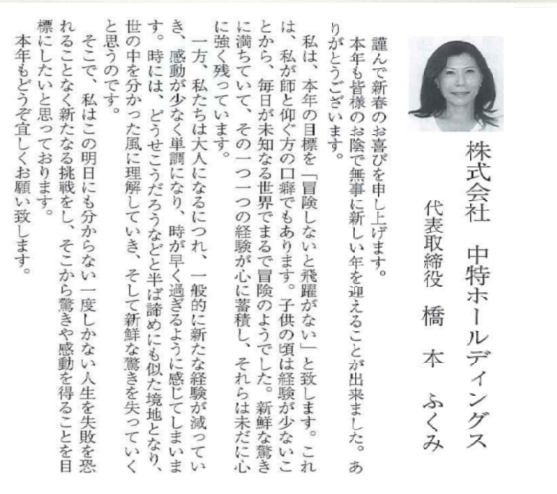 株式会社 中特ホールディングス
代表取締役 橋本 ふくみ
謹んで新春のお喜びを申し上げます。
本年も皆様のお陰で無事に新しい年を迎えることが出来ました。あ
りがとうございます。
私は、本年の目標を「冒険しないと飛躍がない」と致します。これ
は、私が師と仰ぐ方の口癖でもあります。子供の頃は経験が少ないこ
とから、毎日が未知なる世界でまるで冒険のようでした。新鮮な驚き
に満ちていて、その一つ一つの経験が心に蓄積し、それらは未だに心
に強く残っています。
一方、私たちは大人になるにつれ、一般的に新たな経験が減ってい
き、感動が少なく単調になり、時が早く過ぎるように感じてしまいま
す。時には、どうせこうだろうなどと半ば諦めにも似た境地となり、
世の中を分かった風に理解していき、そして新鮮な驚きを失っていく
と思うのです。
そこで、私はこの明日にも分からない一度しかない人生を失敗を恐
れることなく新たなる挑戦をし、そこから驚きや感動を得ることを目
標にしたいと思っております。
本年もどうぞ宜しくお願い致します。